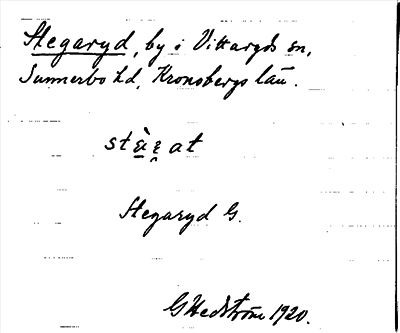 Stegaryd, by i Vittaryds sn,
Sunnerbo hd, Kronobergs län.
stὰ̱ʀ̯at
Stegaryd G.
G Hedström 1920.